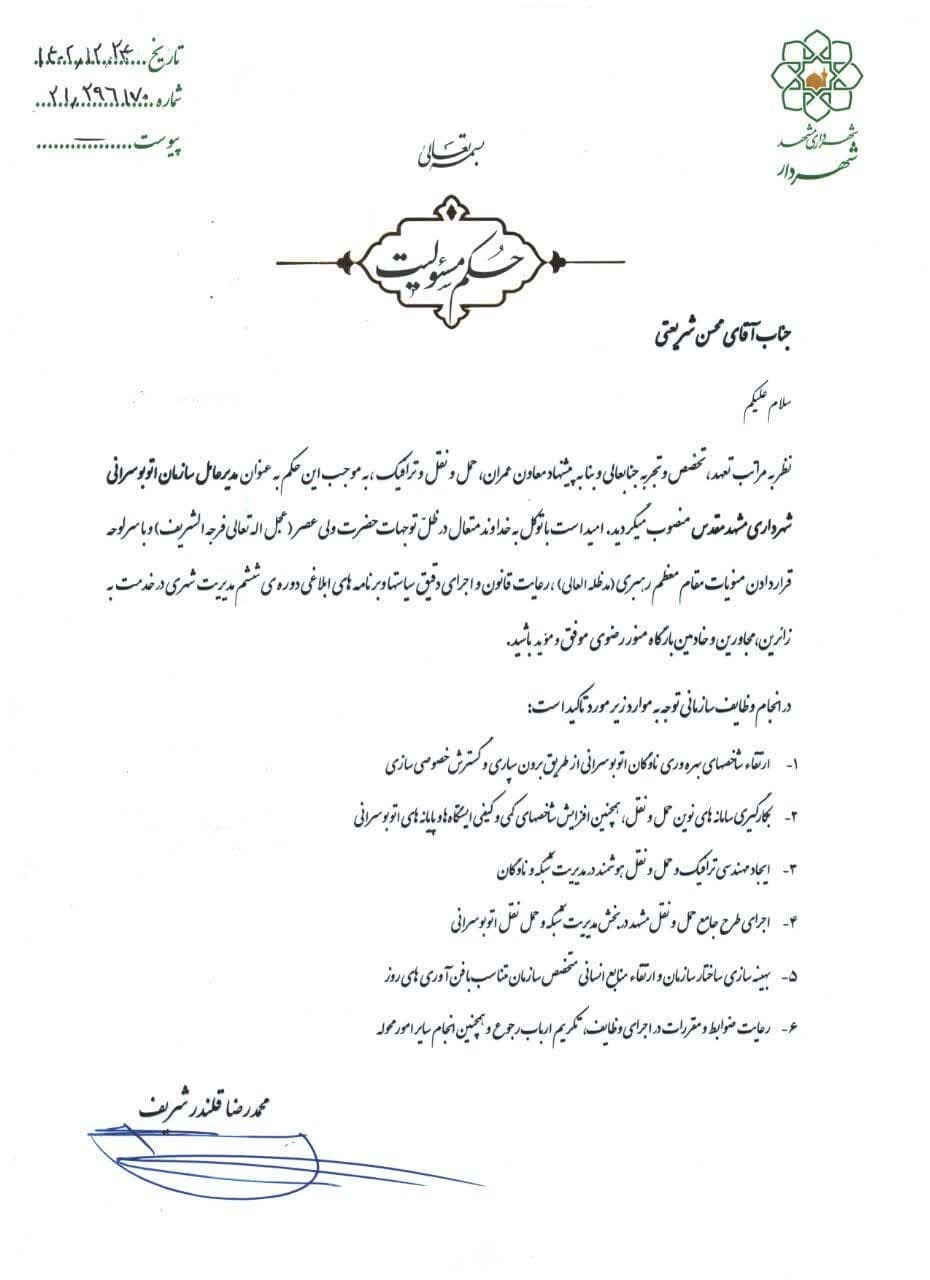 تاریخ ۱۴۰۲٫۱۲٫۲۴
شماره ۲۱٫۲۹۶۱۷۰
پیوست
شهرداری مشهد
شهردار
بسمه تعالی
حکم مسئولیت
جناب آقای محسن شریعتی
سلام علیکم
نظر به مراتب تعهد، تخصص و تجربه جنابعالی و بنا به پیشنهاد معاون عمران، حمل و نقل و ترافیک ، به موجب این حکم به عنوان مدیرعامل سازمان اتوبوسرانی
شهرداری مشهد مقدس منصوب میگردید. امید است با توکل به خداوند متعال در ظلّ توجهات حضرت ولی عصر (عجل اله تعالی فرجه الشریف) و با سرلوحه
قرار دادن منویات مقام معظم رهبری (مدظله العالی) ، رعایت قانون و اجرای دقیق سیاستها و برنامه های ابلاغی دوره ی ششم مدیریت شهری در خدمت به
زائرین، مجاورین و خادمین بارگاه منور رضوی موفق و مؤید باشید.
در انجام وظایف سازمانی توجه به موارد زیر مورد تاکید است:
۱- ارتقاء شاخصهای بهره وری ناوگان اتوبوسرانی از طریق برون سپاری و گسترش خصوصی سازی
۲- بکارگیری سامانه های نوین حمل و نقل، همچنین افزایش شاخصهای کمی و کیفی ایستگاه ها و پایانه های اتوبوسرانی
۳- ایجاد مهندسی ترافیک و حمل و نقل هوشمند در مدیریت شبکه و ناوگان
۴- اجرای طرح جامع حمل و نقل مشهد در بخش مدیریت شبکه و حمل نقل اتوبوسرانی
۵- بهینه سازی ساختار سازمان و ارتقاء منابع انسانی متخصص سازمان متناسب با فن آوری های روز
۶- رعایت ضوابط و مقررات در اجرای وظایف، تکریم ارباب رجوع و همچنین انجام سایر امور محوله
محمدرضا قلندر شریف